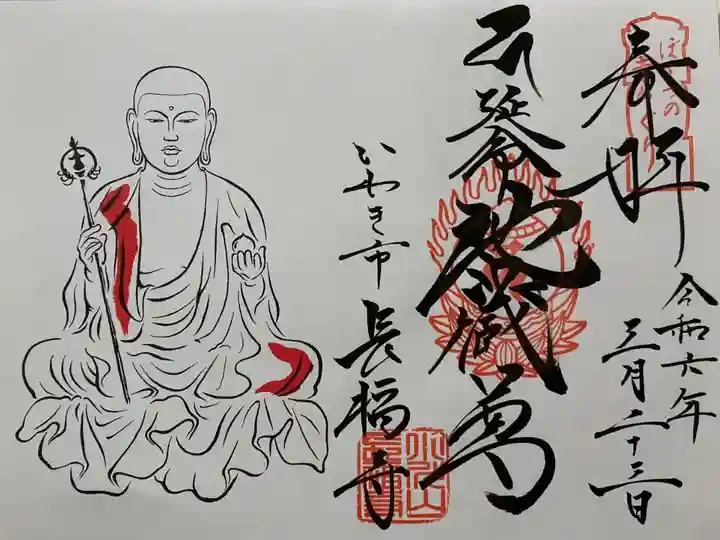 奉拝
令和六年
三月二十三日
延命地蔵尊
いわき市 長福寺